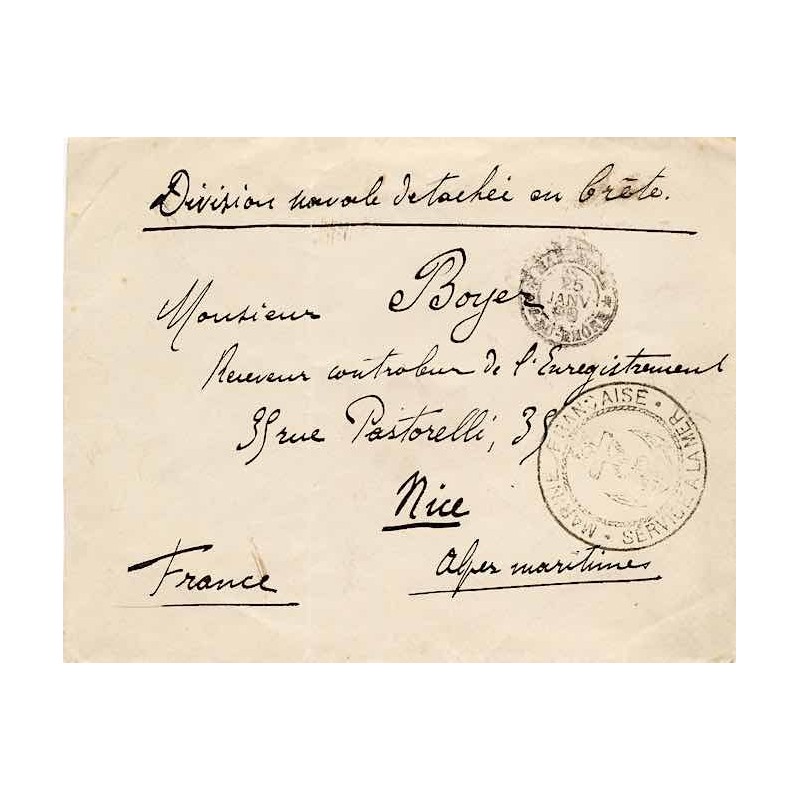 Division navale detachée en Crête.
Monsieur Boyer
Receveur contrôleur de l'Enregistrement
35 rue Pastorelli, 35
Nice
Alpes maritimes
France
25
JANV
MARINE FRANÇAISE • SERVICE A LA MER •